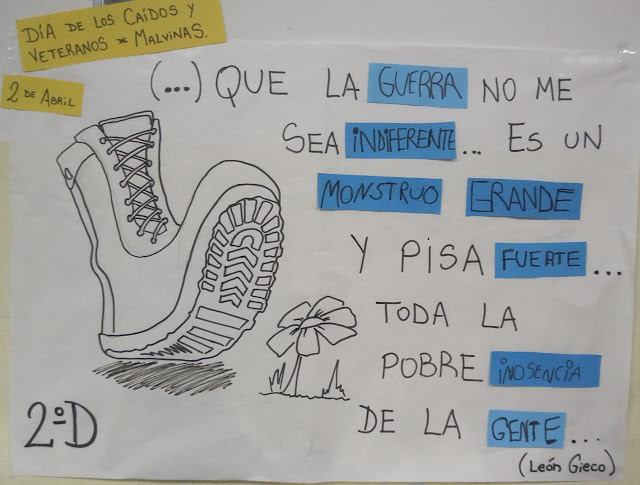 DÍA DE LOS CAÍDOS Y
VETERANOS DE MALVINAS.
2 DE ABRIL
(...) QUE LA GUERRA NO ME
SEA INDIFERENTE... ES UN
MONSTRUO GRANDE
Y PISA FUERTE...
TODA LA
POBRE INOSENCIA
DE LA GENTE...
(León Gieco)
2ºD